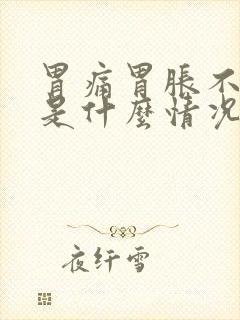 胃痛胃脹不
是什麼情况
夜纤雪